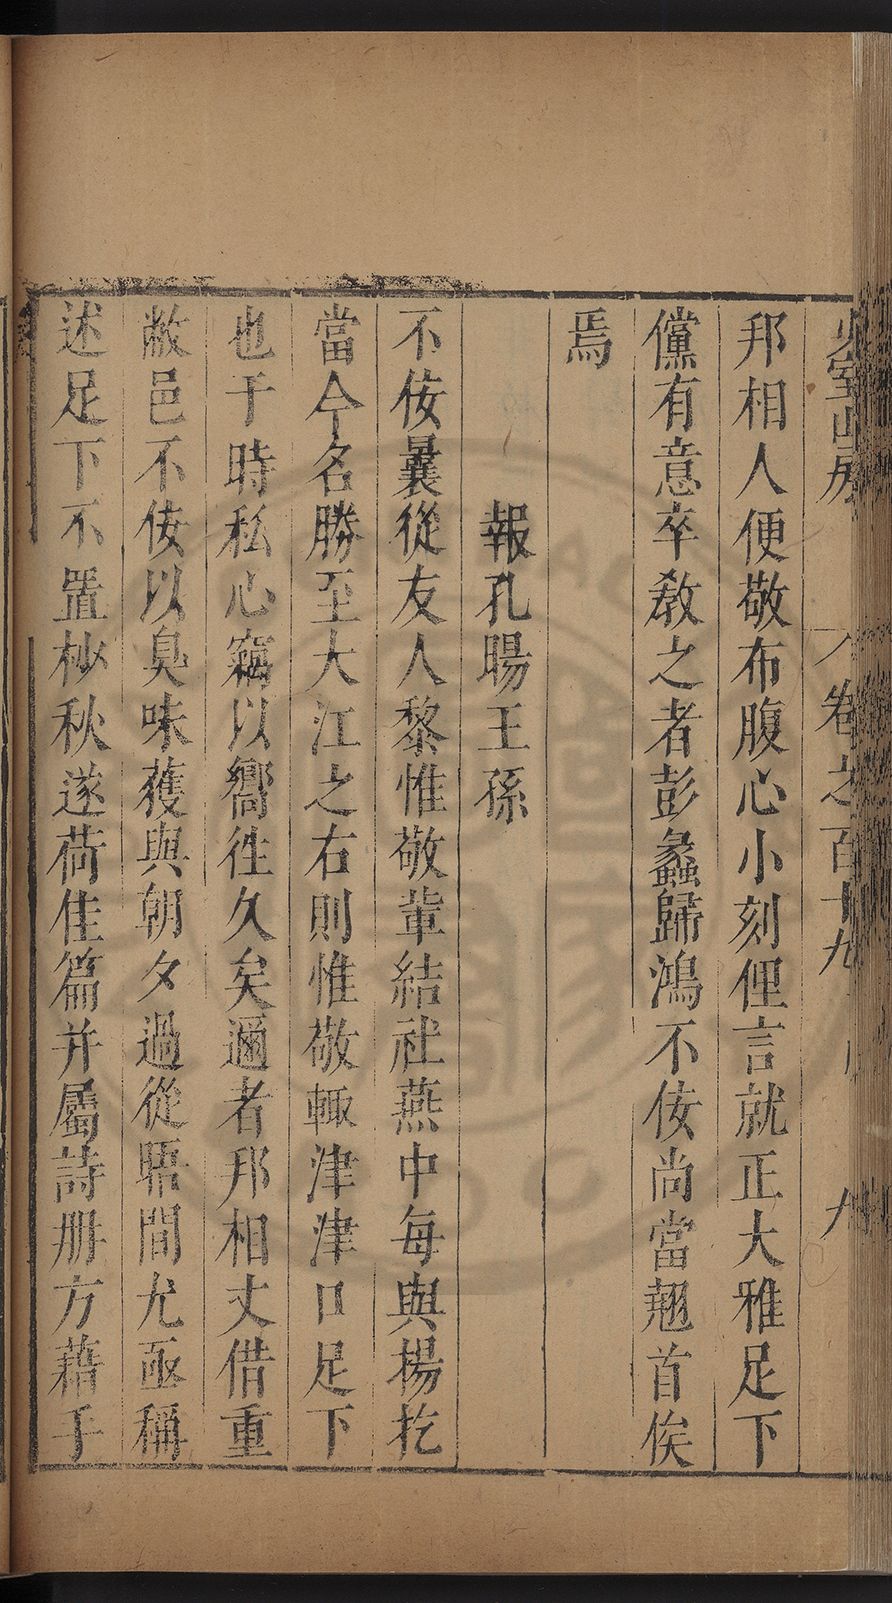 少室山房 卷之百十九 九
邦相人便敬布腹心小刻俚言就正大雅足下
儻有意卒教之者彭蠡歸鴻不佞尚當翹首俟
焉
報孔暘王孫
不佞曩從友人黎惟敬軰結社燕中每與揚扢
當今名勝至大江之右則惟敬輙津津口足下
也于時私心竊以嚮徃久矣邇者邦相丈借重
敝邑不佞以臭味獲與朝夕過從晤間尤亟稱
述足下不置杪秋遂荷佳篇并屬詩册方藉手